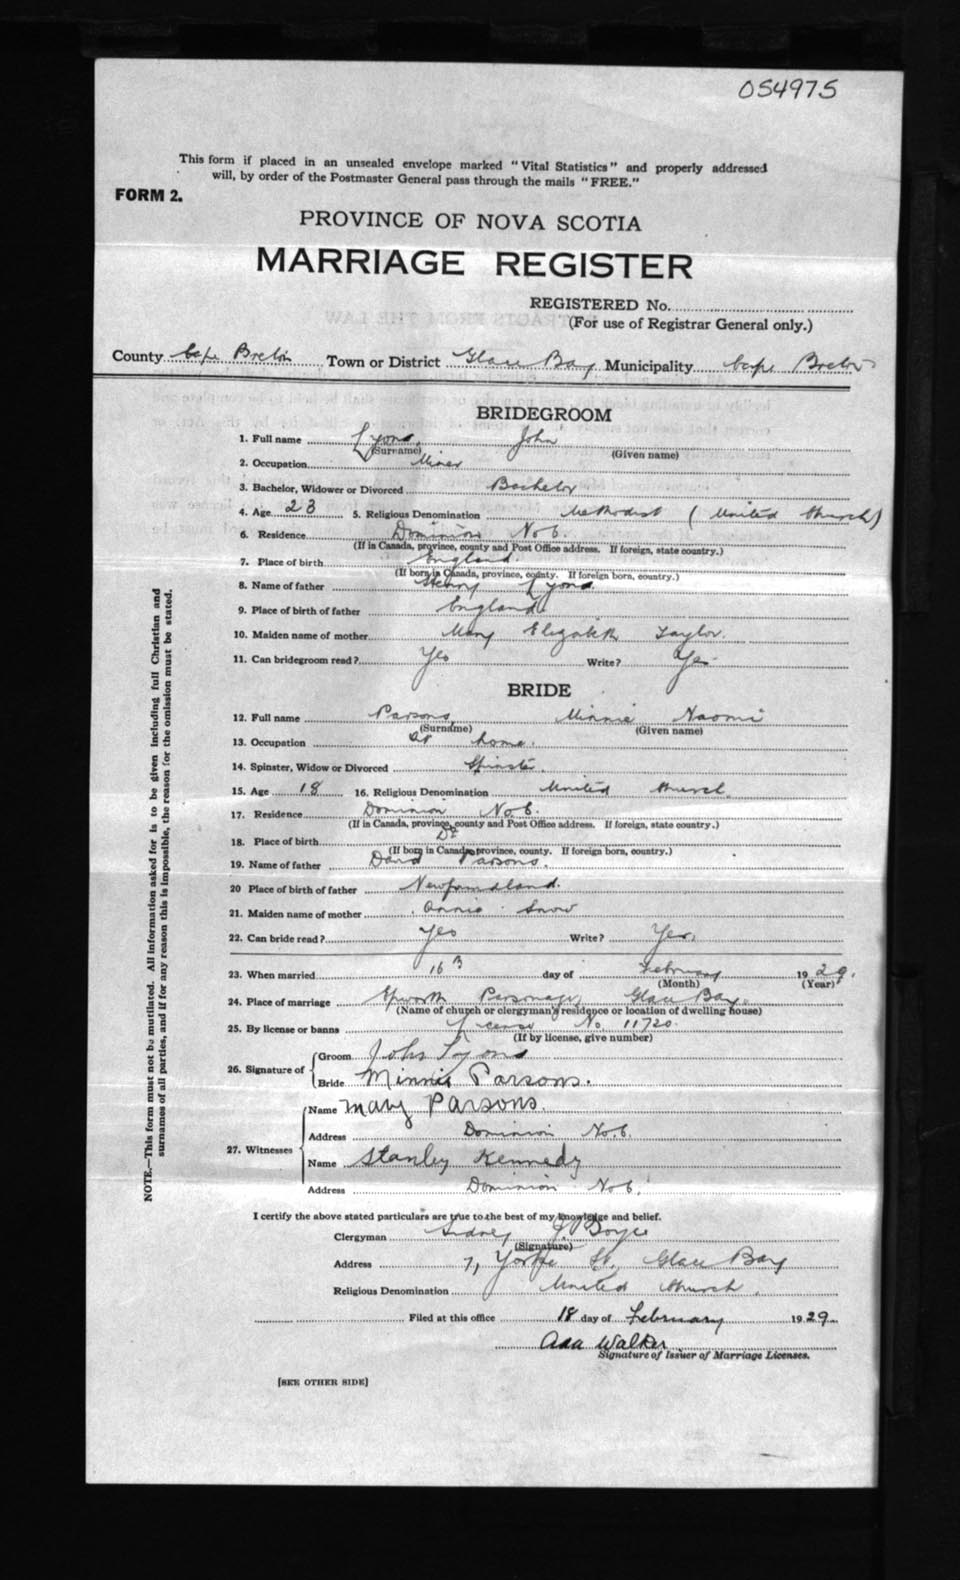 054975
This form if placed in an unsealed envelope marked "Vital Statistics" and properly addressed
will, by order of the Postmaster General pass through the mails "FREE."
FORM 2.
PROVINCE OF NOVA SCOTIA
MARRIAGE REGISTER
REGISTERED No.
(For use of Registrar General only.)
County Cape Breton Town or District Glace Bay Municipality Cape Breton
BRIDEGROOM
1. Full name Lyons, John
(Surname) (Given name)
2. Occupation Miner
3. Bachelor, Widower or Divorced Bachelor
4. Age 23 5. Religious Denomination Methodist (United Church)
6. Residence Dominion No 6.
(If in Canada, province, county and Post Office address. If foreign, state country.)
7. Place of birth England.
(If born in Canada, province, county. If foreign born, country.)
8. Name of father Henry Lyons.
9. Place of birth of father England.
10. Maiden name of mother Mary Elizabeth Taylor.
11. Can bridegroom read? Yes Write? Yes
BRIDE
12. Full name Parsons, Minnie Naomi
(Surname) (Given name)
13. Occupation At home.
14. Spinster, Widow or Divorced Spinster.
15. Age 18 16. Religious Denomination United Church.
17. Residence Dominion No 6.
(If in Canada, province, county and Post Office address. If foreign, state country.)
18. Place of birth Do
(If born in Canada, province, county. If foreign born, country.)
19. Name of father David Parsons.
20 Place of birth of father Newfoundland.
21. Maiden name of mother Annie Snow
22. Can bride read? Yes Write? Yes.
23. When married 16th day of February 1929.
(Month) (Year)
24. Place of marriage Epworth Parsonage, Glace Bay.
(Name of church or clergyman's residence or location of dwelling house)
25. By license or banns License No 11720.
(If by license, give number)
26. Signature of Groom John Lyons
Bride Minnie Parsons.
27. Witnesses Name Mary Parsons.
Address Dominion No. 6.
Name Stanley Kennedy
Address Dominion No 6.
I certify the above stated particulars are true to the best of my knowledge and belief.
Clergyman Sidney J. Boyce
(Signature)
Address 7, Yorke St, Glace Bay
Religious Denomination United Church.
Filed at this office 18 day of February 1929.
Ada Walker
Signature of Issuer of Marriage Licenses.
[SEE OTHER SIDE]
NOTE.—This form must not be mutilated. All information asked for is to be given including full Christian and
surnames of all parties, and if for any reason this is impossible, the reason for the omission must be stated.